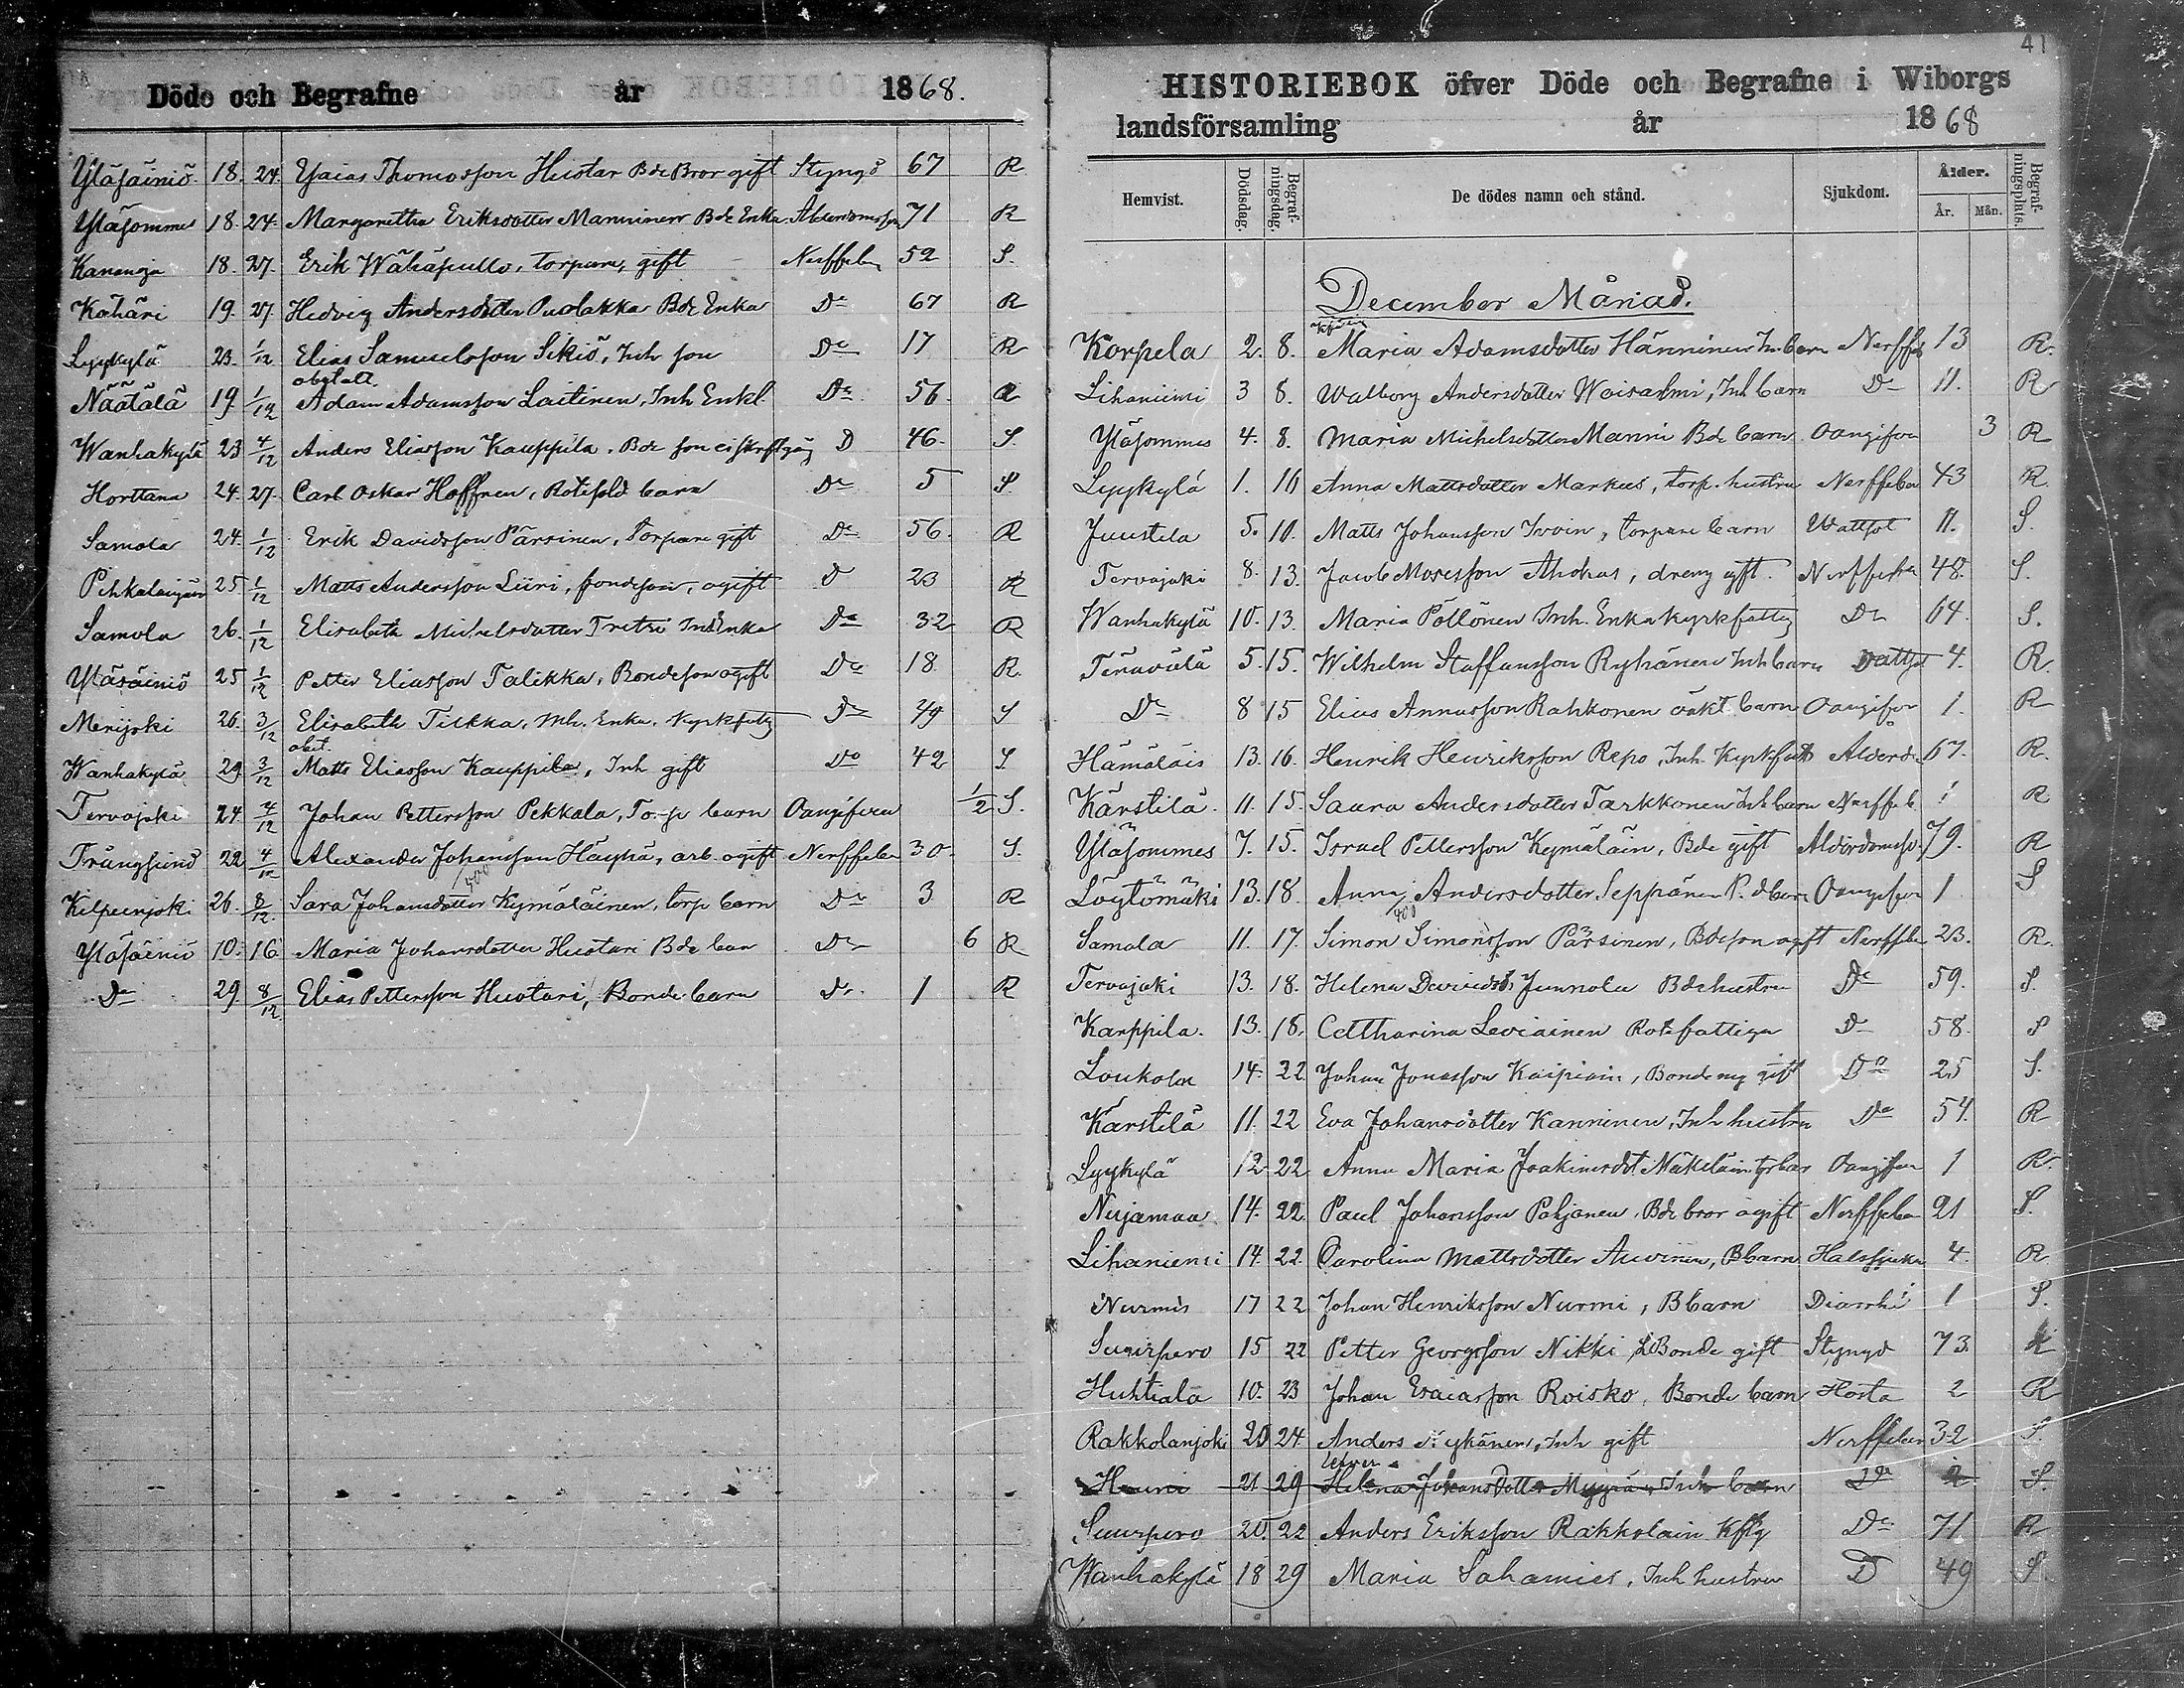 Döde och Begrafne år 1868.
Yläsäiniö 18. 24. Esaias Thomasson Huotar Bde Bror gift Styng 67 R
Yläsommes 18. 24. Margaretha Eriksdotter Manninen Bde Enka Ålderdomssv 71 R
Kananoja 18. 27. Erik Wähäpullo, torpare, gift Nerffeber 52 S.
Kähäri 19. 27. Hedvig Andersdotter Puolakka Bde Enka Do 67 R
Lyykylä 23. 1/12 Elias Samuelsson Sikiö, Inh son Do 17 R
Näätälä 19. 1/12 Adam Adamsson Laitinen, Inh Enkl. Do 56. R
Wanhakylä 23 4/12 Anders Eliasson Kauppila, Bde son D 46. S.
Horttana 24. 27. Carl Oskar Hoffren, Rotefold barn Do 5 S
Samola 24. 1/12 Erik Davidsson Pärsinen, Torpare gift Do 56. R
25 1/12 Matts Andersson Siiri, bondeson, ogift D 23 R
Samola 26. 1/12 Elisabeth Michelsdotter Tretri Inh Enka Do 32 R
Yläsäiniö 25 1/12 Petter Eliasson Talikka, Bondeson ogift Do 18 R.
Merijoki 26. 3/12 Elisabeth Tiikka, Inh. Enka, Kyrkfattig Do S
Wanhakylä 29 3/12 Matts Eliasson Kauppila, Inh gift Do 42 S
Tervajoki 24. 4/12 Johan Pettersson Pekkala, Torp barn Oangifven 1/2 S.
Trångsund 22 4/12 Alexander Johansson Häyhä, arb. ogift Nerffeber 30. S.
Kilpeenjoki 26. 8/12 Sara Johansdotter Kymäläinen, torp barn Do 3 R
Yläsäiniö 10. 16. Maria Johansdotter Huotari Bde barn Do 6 R
Do 29 8/12 Elias Pettersson Huotari, Bonde barn Do 1 R
41
HISTORIEBOK öfver Döde och Begrafne i Wiborgs
landsförsamling år 1868
Hemvist. Dödsdag. Begrafningsdag. De dödes namn och stånd. Sjukdom. Ålder. År. Mån. Begrafningsplats.
December Månad.
Korpela 2. 8. Maria Adamsdotter Hänninen Inh barn Nerffeb 13 R.
Lihaniemi 3 8. Walborg Andersdotter Woisalmi, Inh barn Do 11. R
Yläsommes 4. 8. Maria Michelsdotter Manni Bde barn Oangifven 3 R
Lyykylä 1. 16 Anna Mattsdotter Markus, torp. hustru Nerffeber 43 R.
Juustila 5. 10. Matts Johansson Ivoin, torpare barn Wattsot 11. S.
Tervajoki 8. 13. Jacob Mosesson Ahokas, dreng gift. Nerffeber 48. S.
Wanhakylä 10. 13. Maria Pöllönen Inh. Enka kyrkfattig Do 64. S.
Terävälä 5. 15. Wilhelm Staffansson Ryhänen Inh barn Wattsot 4. R.
Do 8 15 Elias Annasson Rahkonen oäkt barn Oangifven 1. R
Hämäläis 13. 16. Henrik Henriksson Repo, Inh. Kyrkfatt Alderd. 67. R.
Kärstilä. 11. 15. Saara Andersdotter Tarkkonen Inh barn Nerffeb. 1 R
Yläsommes 7. 15. Israel Pettersson Kymäläin, Bde gift Alderdomssv. 79. R
Löytömäki 13. 18. Anna Andersdotter Seppänen barn Oangifven 1 S
Samola 11. 17. Simon Simonsson Pärsinen, Bdeson ogift Nerffeber 23. R.
Tervajoki 13. 18. Helena Davidsd. Junnola Bde hustru Do 59. S.
Karppila. 13. 18. Cattharina Leviäinen Rotefattiga Do 58. S
Loukola 14. 22 Johan Jonasson Kaipiain, Bonde mg gift Do 25 S.
Kärstilä 11. 22 Eva Johansdotter Kanninen, Inh hustru Do 54. R
Lyykylä 12 22 Anna Maria Joakimsdot Näkiläin Oangifven 1 R.
Nuijamaa 14. 22. Paul Johansson Pohjanen, Bde bror ogift Nerffeber 21 S.
Lihaniemi 14. 22. Carolina Mattsdotter Auvinen, B barn Halssjuka 4. R
Nurmis 17 22 Johan Henriksson Nurmi, B barn Diarrhé 1 S.
Suurpero 15 22 Petter Georgsson Nikki, Bonde gift Styngd 73. R
Huhtiala 10. 23 Johan Esaiasson Roisko, Bonde barn Hosta 2 R
Rakkolanjoki 20 24 Anders Nykänen, Inh gift Nerffeber 32 S.
Lefver
Houni 21 29 Helena Johansdotter Myyrä Inh barn Do 2 S.
Suurpero 20. 22 Anders Eriksson Rakkolain Kfttg Do 71 R
Wanhakylä 18 29 Maria Sahamies, Inh hustru D 49 S.